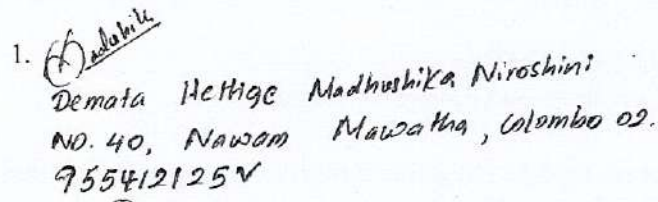 1. Madushik
Demata Hettige Madhushika Niroshini
NO. 40, Nawam Mawatha, Colombo 02.
955412125V